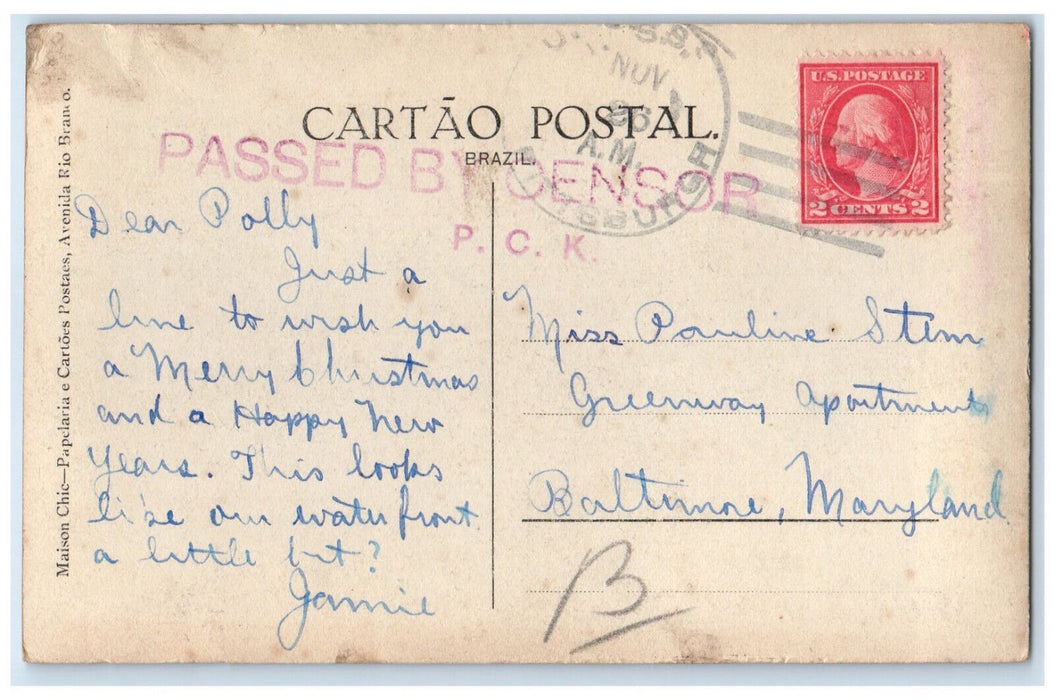 CARTÃO POSTAL.
BRAZIL.
PASSED BY CENSOR
P. C. K.
NOV
A.M.
PITTSBURGH
U.S. POSTAGE
2 CENTS 2
Maison Chic—Papelaria e Cartões Postaes, Avenida Rio Branco.
Dear Polly
Just a
line to wish you
a Merry Christmas
and a Happy New
Years. This looks
like our water front
a little bit?
Jamie
Miss Pauline Stern
Greenway Apartments
Baltimore, Maryland
B